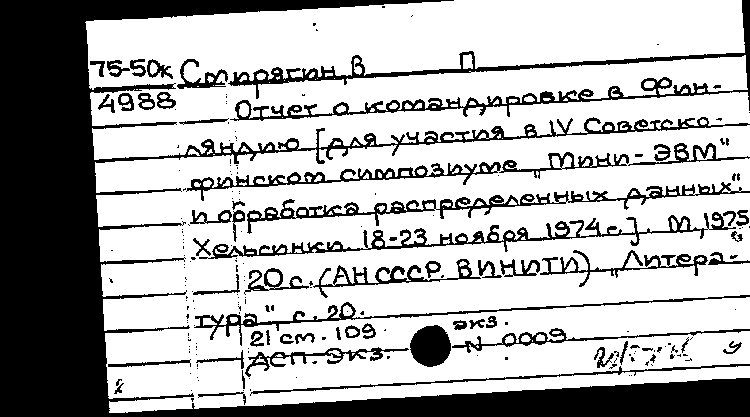 75-50к Стпрягин, В П
4988 Отчет о командировке в Фин-
ляндию [для участия в IV Советско-
финском симпозиуме „Мини-ЭВМ"
и обработка распределенных данных".
Хельсинки 18-23 ноября 1974г.]. М, 1975
20 с. (АН СССР. ВИНИТИ). „Литера-
тура", с. 20.
21 см. 109 экз.
ДСП. Экз. N 0009